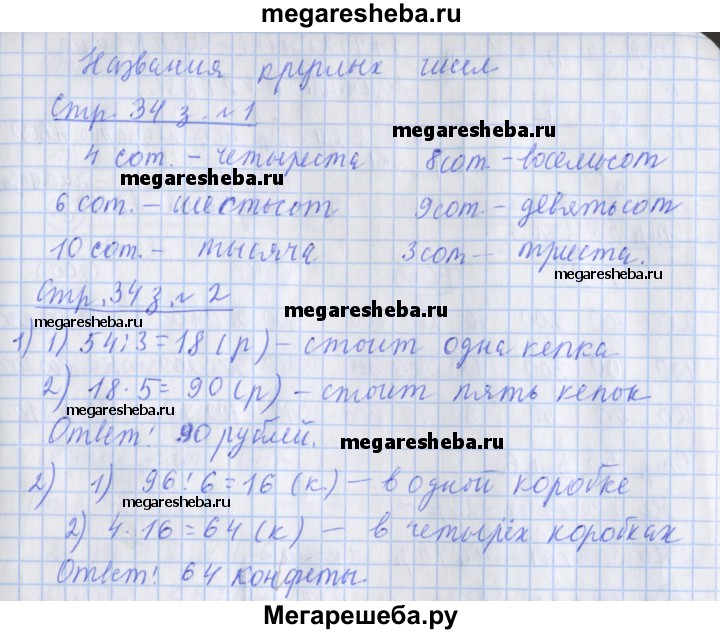 megaresheba.ru
Названия круглых чисел
Стр. 34 з. №1
megaresheba.ru
4 сот. - четыреста 8сот. - восемьсот
megaresheba.ru
6 сот. - шестьсот 9сот. - девятьсот
10 сот. - тысяча 3сот - триста.
megaresheba.ru
Стр. 34 з. № 2
megaresheba.ru
megaresheba.ru
1) 1) 54:3=18 (р) - стоит одна кепка
2) 18·5= 90 (р) - стоит пять кепок
megaresheba.ru
Ответ: 90 рублей.
megaresheba.ru
2) 1) 96:6=16 (к.) - в одной коробке
megaresheba.ru
2) 4·16=64 (к) - в четырёх коробках
megaresheba.ru
Ответ: 64 конфеты.
Мегарешеба.ру